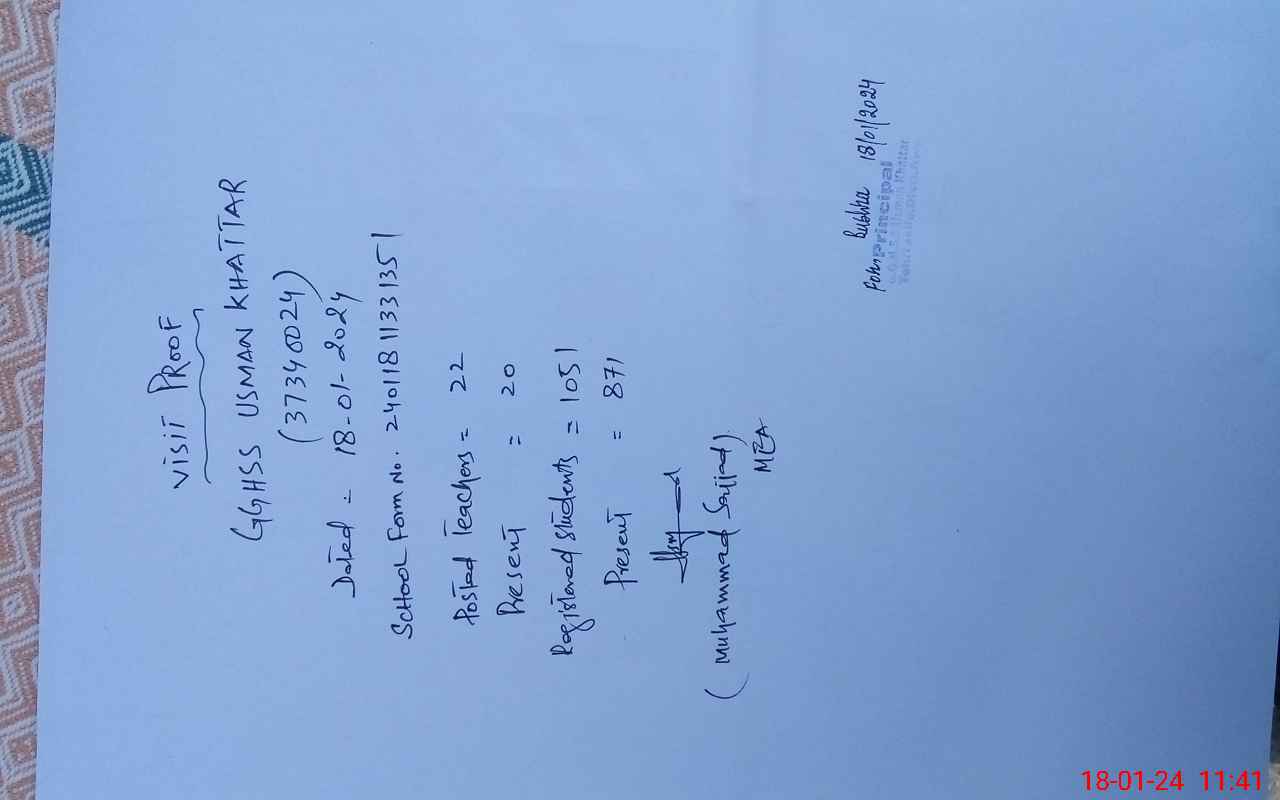 VISIT PROOF
GGHSS USMAN KHATTAR
(37340024)
Dated = 18-01-2024
SCHOOL FORM No. 24011811331351
Posted Teachers = 22
Present = 20
Registered students = 1051
Present = 871
(Muhammad Sajjad)
MEA
Bushra 18/01/2024
Principal
Usman Khattar
18-01-24 11:41